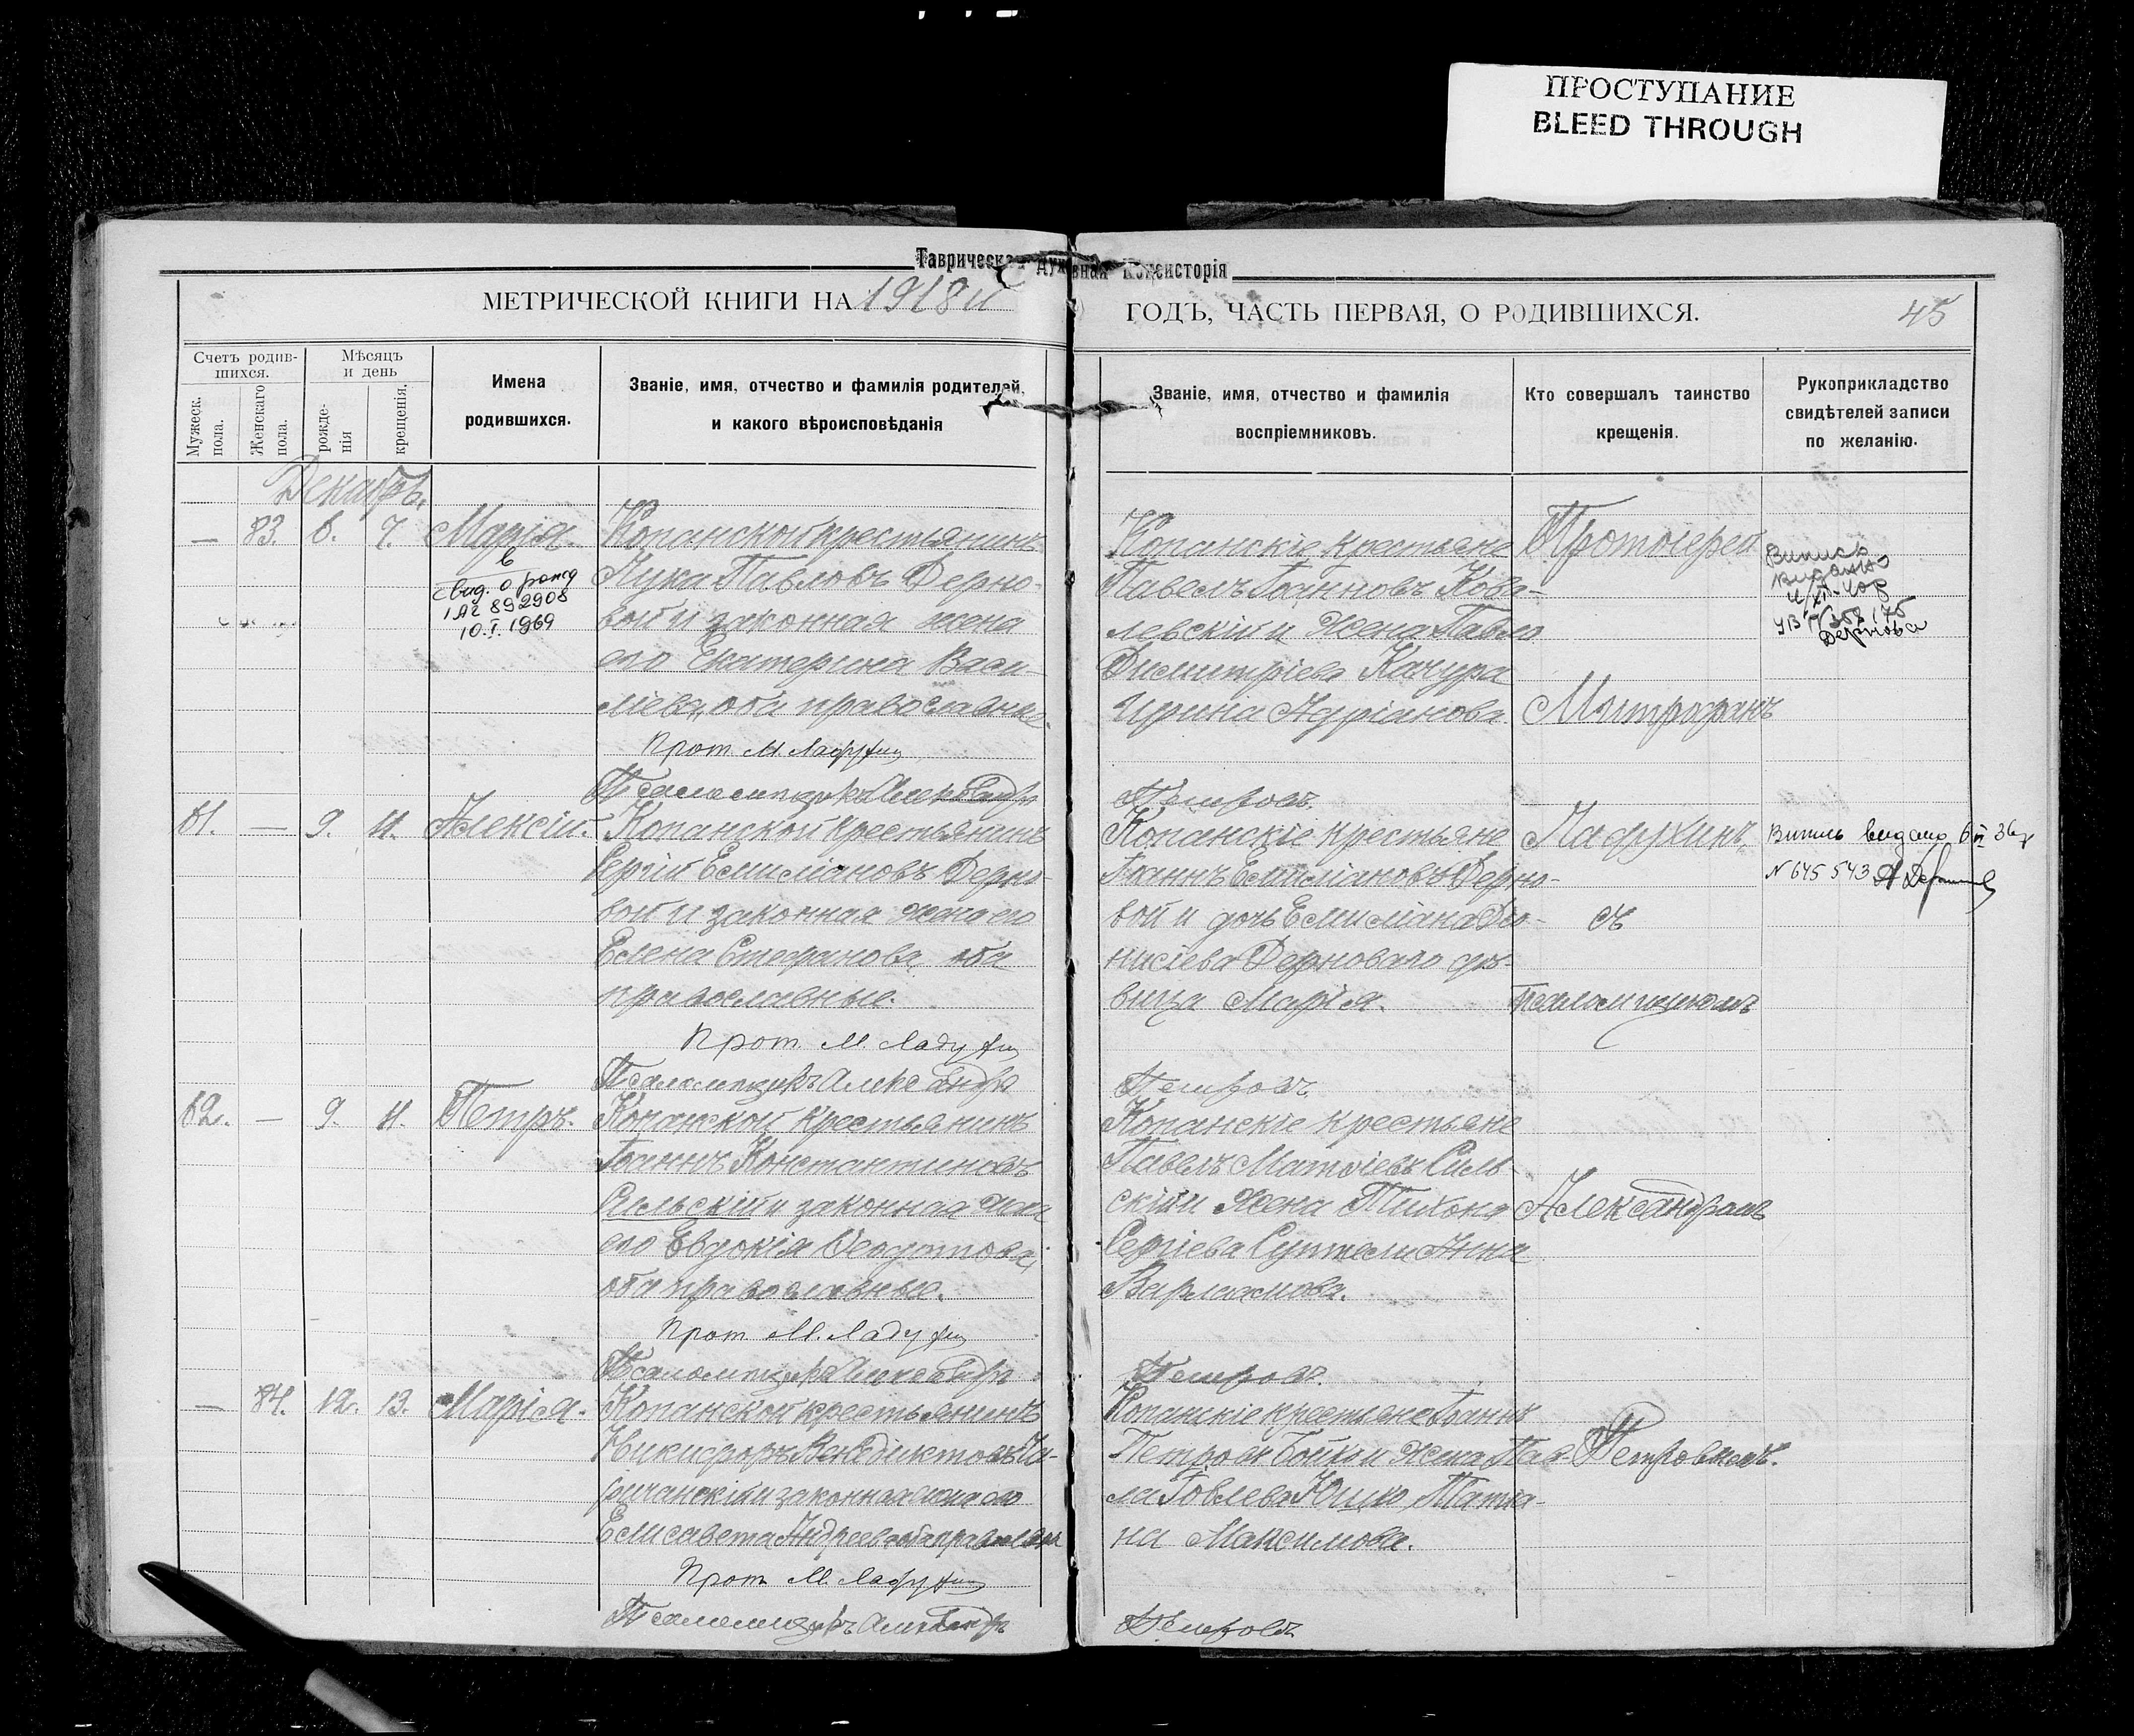 ПРОСТУПАНИЕ
BLEED THROUGH
Таврическая Духовная Консисторія
МЕТРИЧЕСКОЙ КНИГИ НА 1918й
ГОДЪ, ЧАСТЬ ПЕРВАЯ, О РОДИВШИХСЯ.
45
Счетъ родив-
шихся.
Мужеск.
пола.
Женскаго
пола.
Мѣсяцъ
и день
рожде-
нія
крещенія.
Имена
родившихся.
Званіе, имя, отчество и фамилія родителей,
и какого вѣроисповѣданія
Званіе, имя, отчество и фамилія
воспріемниковъ.
Кто совершалъ таинство
крещенія.
Рукоприкладство
свидѣтелей записи
по желанію.
Декабрь.
— 83. 6. 7. Марія.
свид. о рожд
892908
10.I.1969
Копанской крестьянинъ
Лука Павловъ Дерно-
вой и законная жена
его Екатерина Васи-
ліева, оба православные.
Прот. М. Ладухин
Псаломщикъ Александръ
Копанскіе крестьяне
Павелъ Іоанновъ Кова-
левскій и жена Павла
Димитріева Качура
Ирина Адріанова.
Петровъ.
Протоіерей
Митрофанъ
Ладухинъ
съ
псаломщикомъ
Александромъ
Петровымъ.
81. — 9. 11. Алексій.
Копанской крестьянинъ
Сергій Емиліановъ Дерно-
вой и законная жена его
Елена Стефанова, оба
православные.
Прот. М. Ладухин
Псаломщикъ Александръ
Копанскіе крестьяне
Іоаннъ Емиліановъ Дерно-
вой и дочь Емиліана Діо-
нисіева Дерноваго дѣ-
вица Марія.
Петровъ
N 645543
82. — 9. 11. Петръ.
Копанской крестьянинъ
Іоаннъ Константиновъ
Сильскій и законная жена
его Евдокія Ѳеодотова,
оба православные.
Прот. М. Ладухин
Псаломщикъ Александръ
Копанскіе крестьяне
Павелъ Матѳіевъ Силь-
скій и жена Тихона
Сергіева Анна
Варлаамова.
Петровъ.
— 84. 12. 13. Марія.
Копанской крестьянинъ
Никифоръ Венедиктовъ Ца-
ричанскій и законная жена его
Елисавета Андреева оба православн
Прот. М. Ладухин
Псаломщикъ Александръ
Копанскіе крестьяне Іоаннъ
Петровъ Бойко и жена Пав-
ла Іовлева Юшко Татіа-
на Максимова.
Петровъ